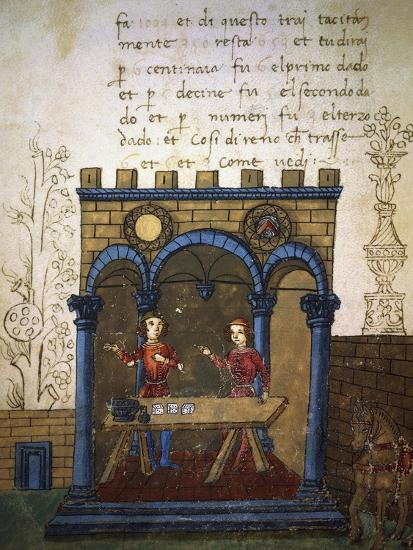 fa et di questo trai tacitan
mente resta et tu dirai
p 6 centinaia fu el primo dado
et p decine fu el secondo da
do et p numeri fu el terzo
dado: et Cosi direno ch trasse
6 et et Come vedi: